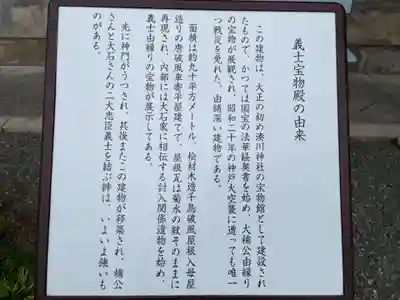 義士宝物殿の由来
この建物は、大正の初め湊川神社の宝物館として建設され
たもので、かつては国宝の法華経奥書を始め、大楠公由縁り
の宝物が展観され、昭和二十年の神戸大空襲に遭っても唯一
つ戦災を免れた、由緒深い建物である。
面積は約九十平方メートル、桧材木造千鳥破風屋根入母屋
造りの唐破風車寄平屋建てで、屋根瓦は菊水の紋そのままに
再現され、内部には大石家に相伝する討入関係遺物を始め、
義士由縁りの宝物が展示してある。
先に神門がうつされ、其後またこの建物が移築され、楠公
さんと大石さんの二大忠臣義士を結ぶ絆は、いよいよ強いも
のがある。